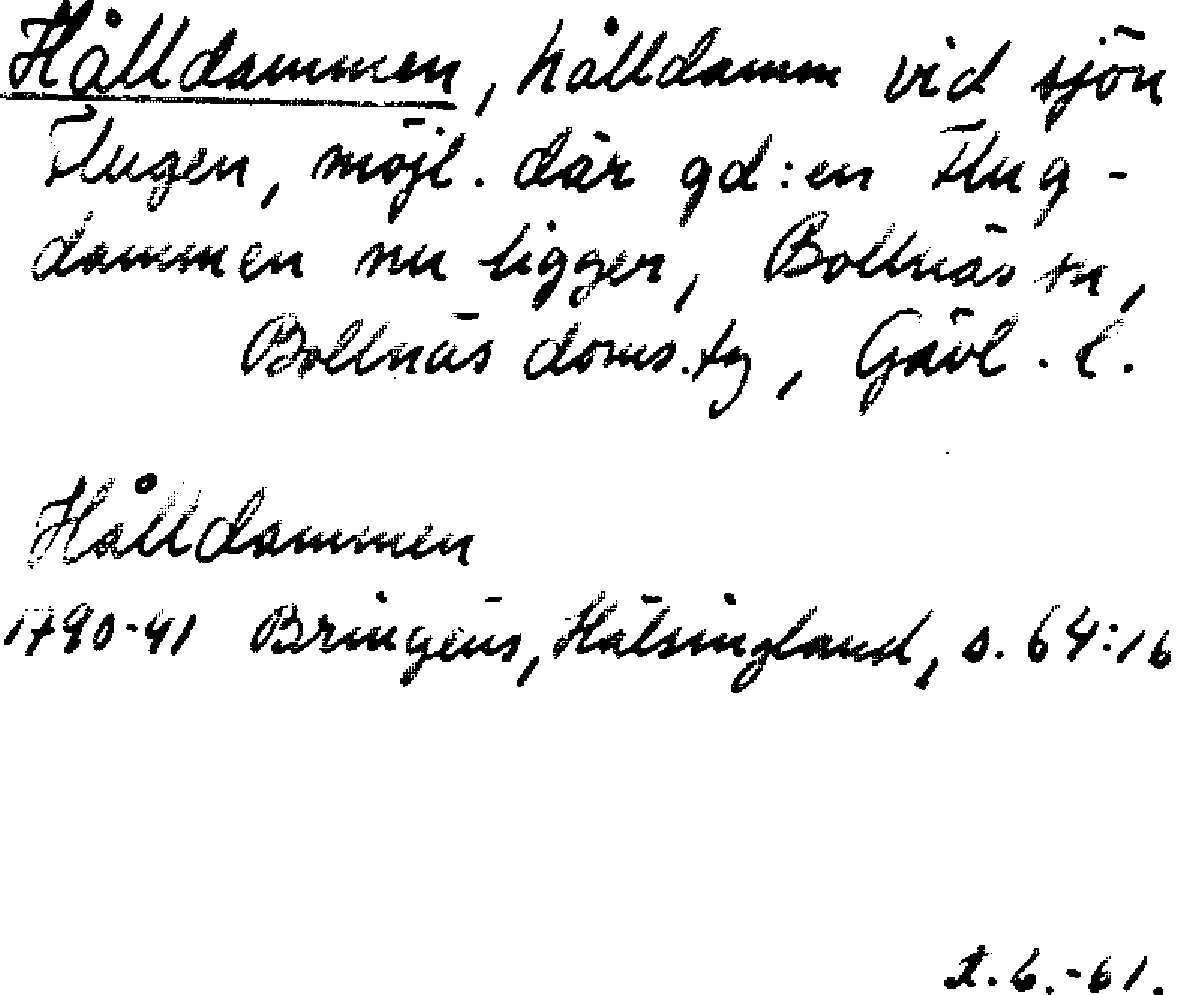 Hålldammen, hålldamm vid sjön
Flugen, möjl. där gd:en Flug-
dammen nu ligger, Bollnäs sn,
Bollnäs doms.tg, Gävl. l.
Hålldammen
1790-91 Bringéus, Hälsingland, s. 64:16
2.6.-61.